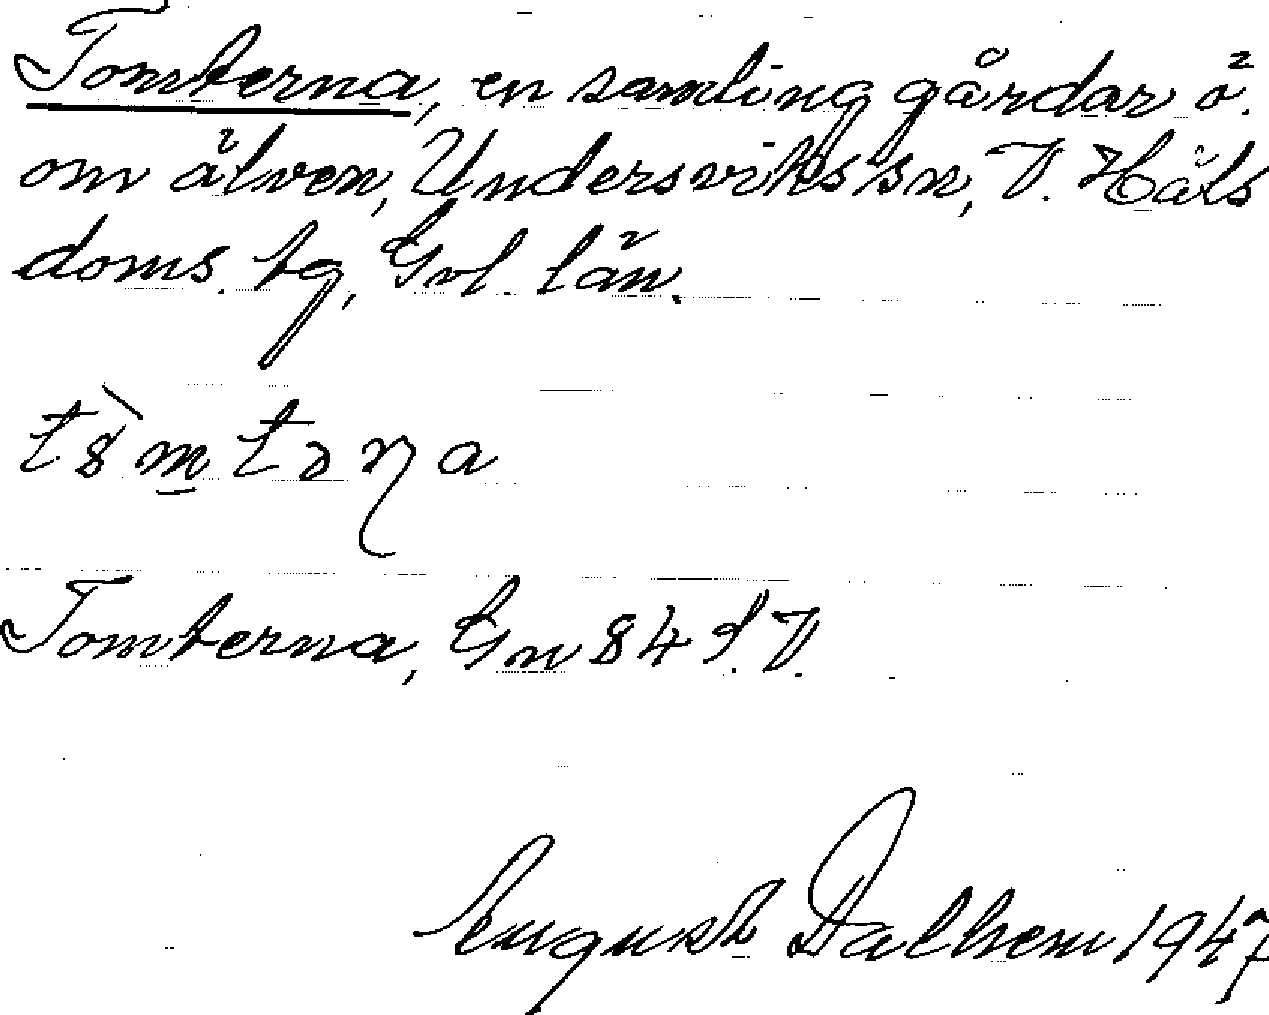 Tomterna, en samling gårdar ö.
om älven, Undersviks sn, V. Häls
doms. tg, Gvl. län.
tòmtəɳa
Tomterna, Gn 84 S.V.
August Dalhem 1947